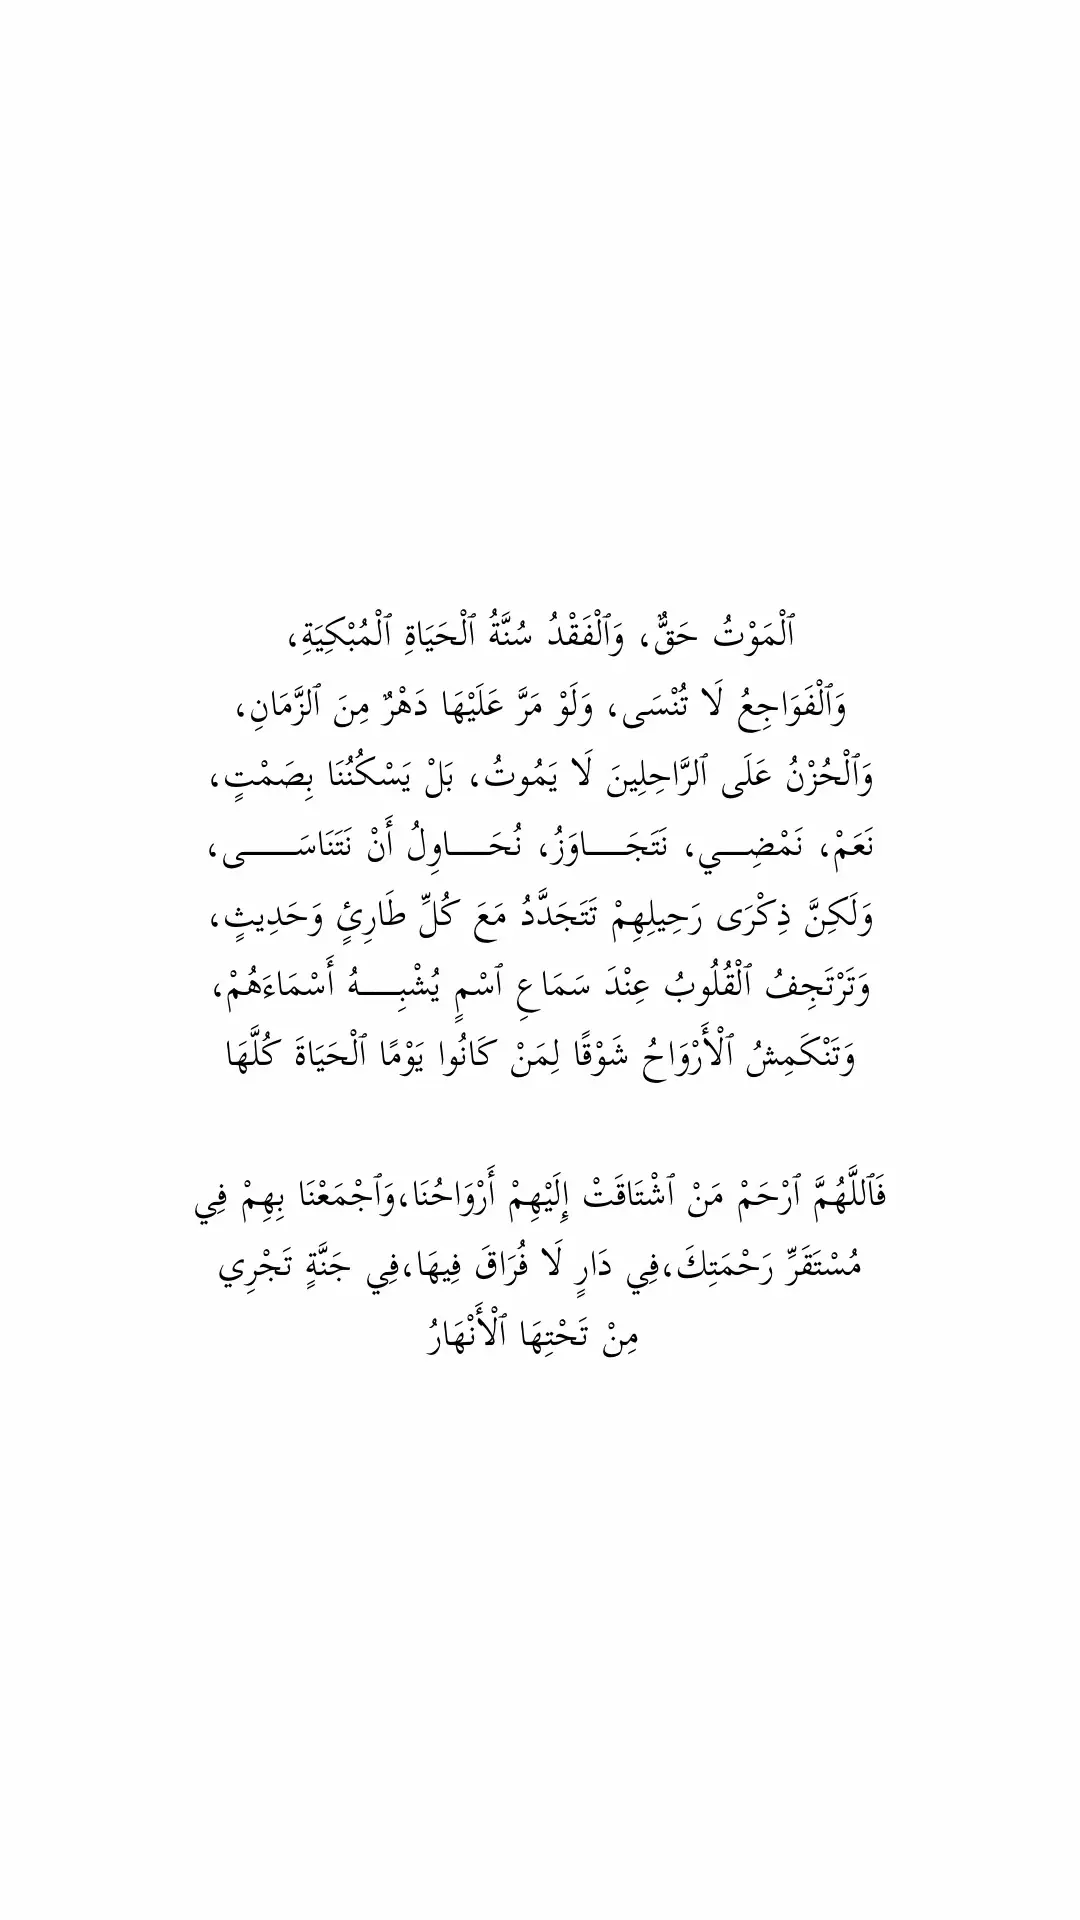 ٱلْمَوْتُ حَقٌّ، وَٱلْفَقْدُ سُنَّةُ ٱلْحَيَاةِ ٱلْمُبْكِيَةِ،
وَٱلْفَوَاجِعُ لَا تُنْسَى، وَلَوْ مَرَّ عَلَيْهَا دَهْرٌ مِنَ ٱلزَّمَانِ،
وَٱلْحُزْنُ عَلَى ٱلرَّاحِلِينَ لَا يَمُوتُ، بَلْ يَسْكُنُنَا بِصَمْتٍ،
نَعَمْ، نَمْضِـــي، نَتَجَـــاوَزُ، نُحَـــاوِلُ أَنْ نَتَنَاسَـــــى،
وَلَكِنَّ ذِكْرَى رَحِيلِهِمْ تَتَجَدَّدُ مَعَ كُلِّ طَارِئٍ وَحَدِيثٍ،
وَتَرْتَجِفُ ٱلْقُلُوبُ عِنْدَ سَمَاعِ ٱسْمٍ يُشْبِـــهُ أَسْمَاءَهُمْ،
وَتَنْكَمِشُ ٱلْأَرْوَاحُ شَوْقًا لِمَنْ كَانُوا يَوْمًا ٱلْحَيَاةَ كُلَّهَا
فَٱللَّهُمَّ ٱرْحَمْ مَنْ ٱشْتَاقَتْ إِلَيْهِمْ أَرْوَاحُنَا،وَٱجْمَعْنَا بِهِمْ فِي
مُسْتَقَرِّ رَحْمَتِكَ،فِي دَارٍ لَا فُرَاقَ فِيهَا،فِي جَنَّةٍ تَجْرِي
مِنْ تَحْتِهَا ٱلْأَنْهَارُ